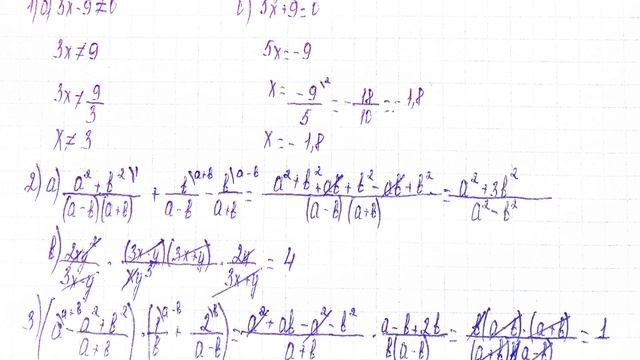 1) а) 3x-9≠0 б) 5x+9=0
3x≠9 5x=-9
3x≠9/3 x=-9\2/5=-18/10=-1,8
x≠3 x=-1,8
2) а) a²+b²\1/(a-b)(a+b) + b\a+b/a-b - b\a-b/a+b = a²+b²+ab+b²-ab+b²/(a-b)(a+b) = a²+3b²/a²-b²
в) 2xy²/3x-y · (3x-y)(3x+y)/xy³ · 2y/3x+y = 4
3) (a\a+b - a²+b²/a+b) · (1\a-b/b + 2\b/a-b) = a²+ab-a²-b²/a+b · a-b+2b/b(a-b) = b(a-b)·(a+b)/(a+b)b(a-b) = 1